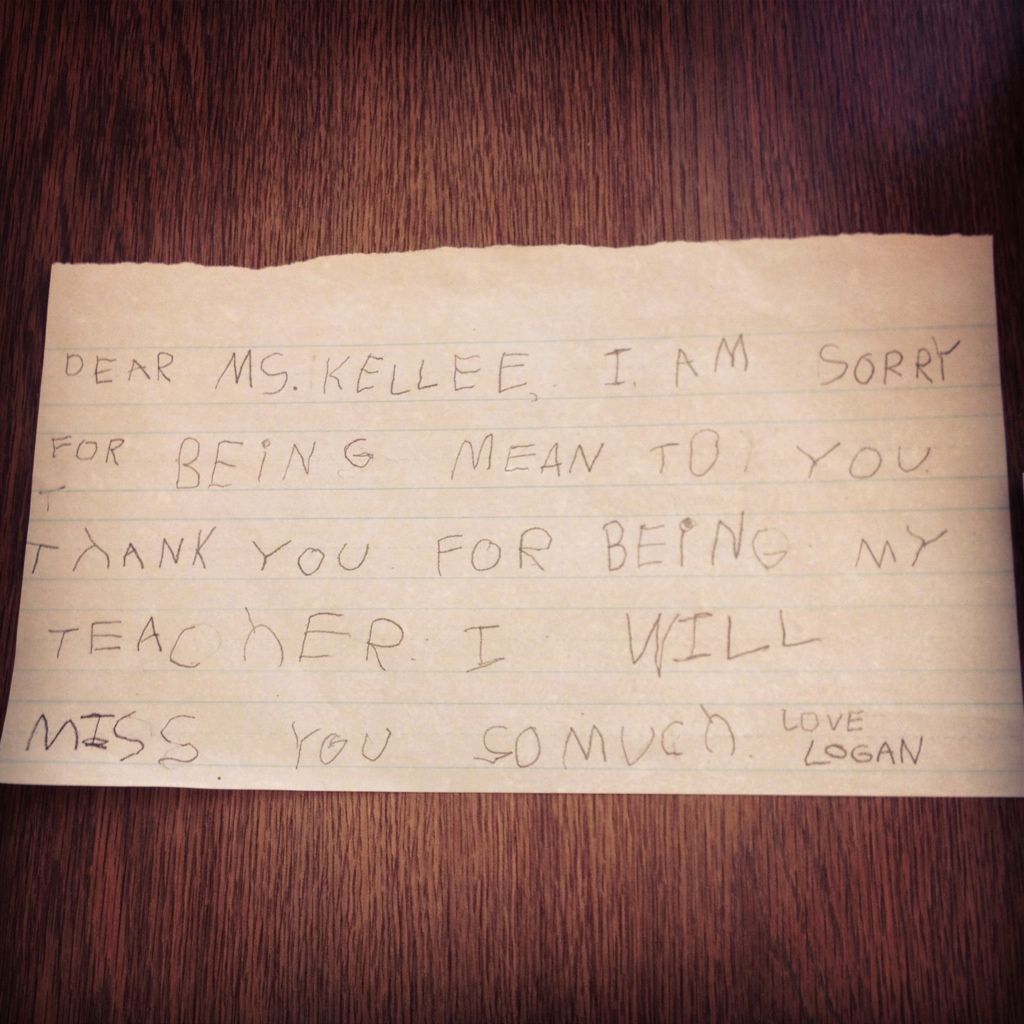 DEAR MS. KELLEE, I. AM SORRY
FOR BEiNG MEAN TO YOU.
T
ThANK YOU FOR BEiNG MY
TEAChER. I WILL
MISS YOU SO MUCh. LOVE
LOGAN